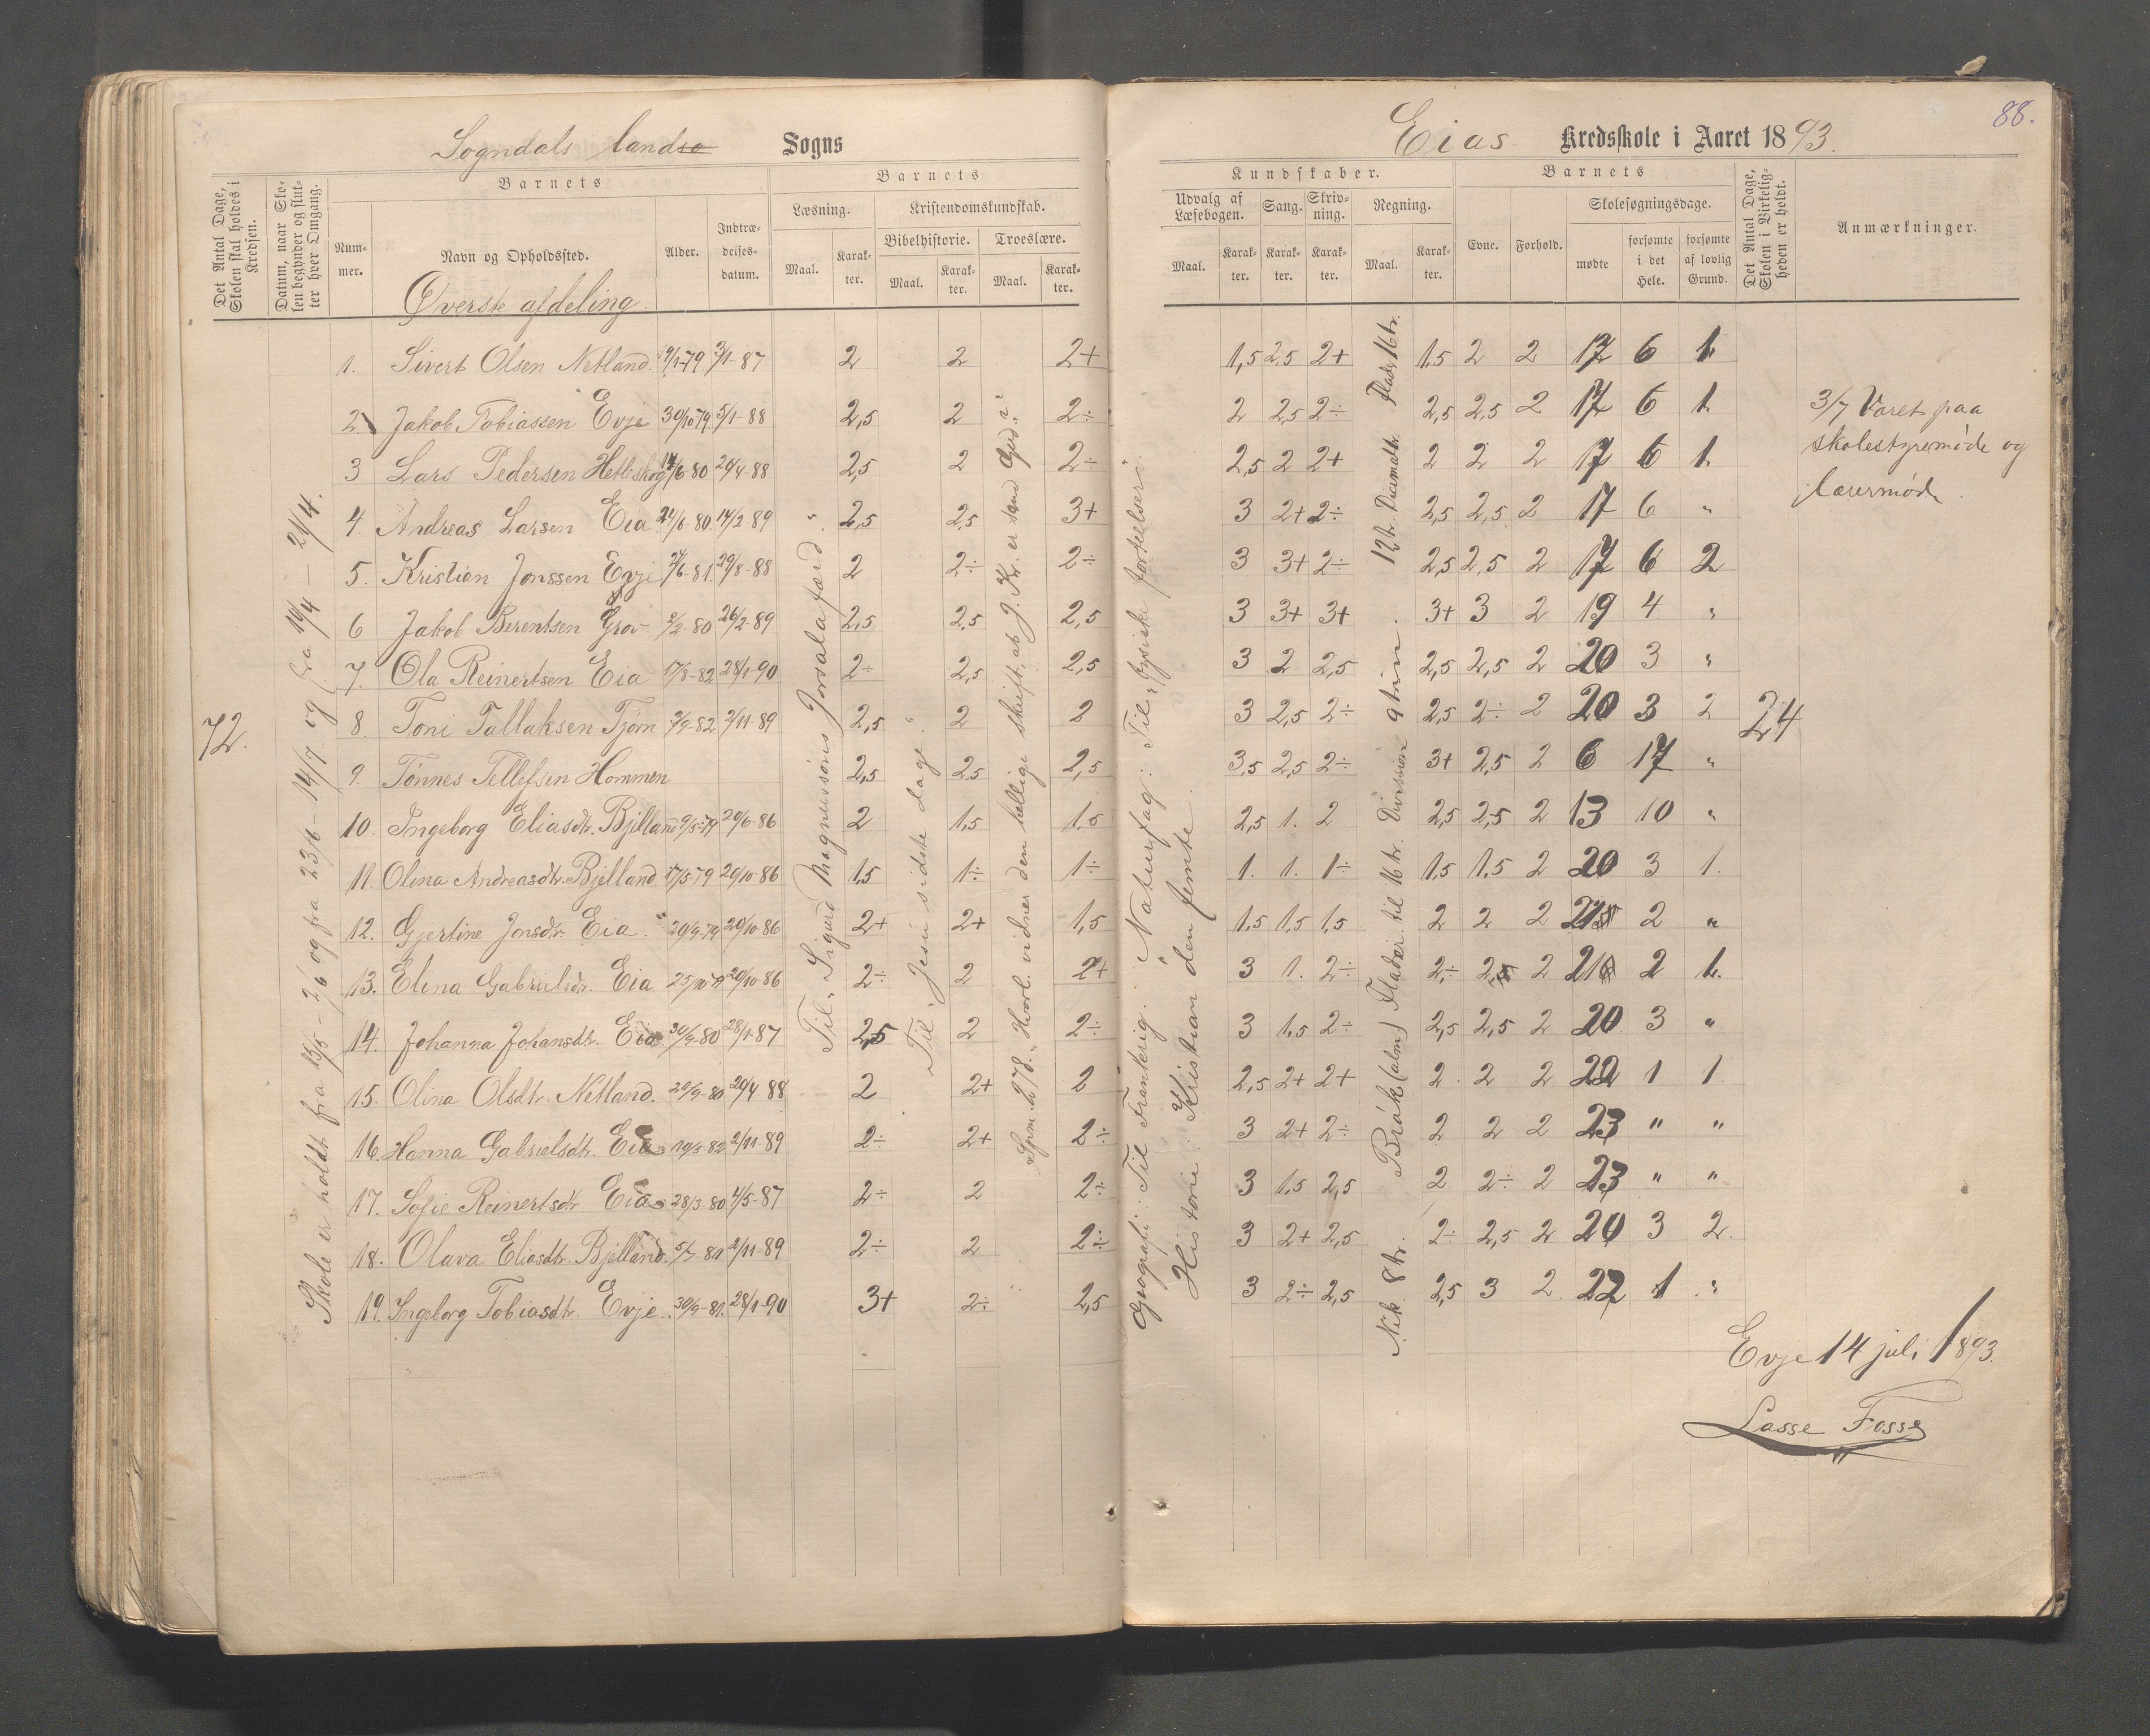 Sogndals landso Sogns
Eias Kredsskole i Aaret 1893.
88.
Det Antal Dage, Skolen skal holdes i Kredsen.
Datum, naar Skolen begynder og slutter hver Omgang.
Barnets
Nummer.
Navn og Opholdssted.
Alder.
Indtrædelsesdatum.
Barnets
Læsning.
Maal.
Karakter.
Kristendomskundskab.
Bibelhistorie.
Maal.
Karakter.
Troeslære.
Maal.
Karakter.
Kundskaber.
Udvalg af Læsebogen.
Maal.
Karakter.
Sang.
Karakter.
Skrivning.
Karakter.
Regning.
Maal.
Karakter.
Barnets
Evne.
Forhold.
Skolesøgningsdage.
mødte
forsømte i det Hele.
forsømte af lovlig Grund.
Det Antal Dage, Skolen i Virkeligheden er holdt.
Anmærkninger.
Øverste afdeling.
72.
Skole er holdt fra 15/5 – 2/6 og fra 23/6 – 14/7 og fra 14/4 – 21/4.
1. Sivert Olsen Netland. 9/1-79 3/1-87 2 2 2+ 1,5 2,5 2+ 1,5 2 2 17 6 1.
2. Jakob Tobiassen Evje 30/10 79 5/1-88 2,5 2 2÷ 2 2,5 2÷ 2,5 2,5 2 17 6 1.
3 Lars Pedersen Hetleskog 14/6-80 20/4-88 2,5 2 2÷ 2,5 2 2+ 2 2 2 17 6 1.
4. Andreas Larsen Eia 24/6-80. 14/2-89 2,5 2,5 3+ 3 2+ 2÷ 2,5 2,5 2 17 6 "
5. Kristian Jonssen Evje 24/6-81. 29/8-88 2 2÷ 2÷ 3 3+ 2÷ 2,5 2,5 2 17 6 2
6 Jakob Berentsen Grov 2/2-80 26/2-89 2,5 2,5 2,5 3 3+ 3+ 3+ 3 2 19 4 "
7. Ola Reinertsen Eia 17/8-82 28/1-90 2÷ 2,5 2,5 3 2 2,5 2,5 2,5 2 20 3 "
8. Toni Tallaksen Tjörn 3/9-82 2/11-89 2,5 2 2 3 2,5 2÷ 2,5 2÷ 2 20 3 2
9. Tönnes Tellefsen Hommen 2,5 2,5 2,5 3,5 2,5 2÷ 3+ 2,5 2 6 17 "
10. Ingeborg Eliasdtr. Bjelland 9/5-79 20/6-86 2 1,5 1,5 2,5 1. 2 2,5 2,5 2 13 10 "
11. Olina Andreasdtr. Bjelland 17/5-79 20/10-86 1,5 1÷ 1÷ 1. 1. 1÷ 1,5 1,5 2 20 3 1.
12. Gjertine Jonsdtr. Eia 20/9-79 20/10-86 2+ 2+ 1,5 1,5 1,5 1,5 2 2 2 21 2 "
13. Elina Gabrielsdtr. Eia 25/10-79 20/10-86 2÷ 2 2+ 3 1. 2÷ 2÷ 2 2 21 2 1.
14. Johanna Johansdtr. Eia 30/9-80 28/1-87 2,5 2 2÷ 3 1,5 2÷ 2,5 2,5 2 20 3 "
15. Olina Olsdtr. Netland. 20/9-80 20/4 88 2 2+ 2 2,5 2+ 2+ 2 2 2 22 1 1
16. Hanna Gabrielsdtr. Eia 19/5-82 2/11-89 2÷ 2+ 2÷ 3 2+ 2÷ 2 2 2 23 " "
17. Sofie Reinertsdtr. Eia 28/3-80 4/5-87 2÷ 2 2÷ 3 1,5 2,5 2 2÷ 2 23 " "
18. Olava Eliasdtr. Bjelland. 5/7-81 2/11-89 2÷ 2 2÷ 3 2+ 2,5 2÷ 2,5 2 20 3 2.
19. Ingeborg Tobiasdtr. Evje. 30/9-81. 28/1-90 3+ 2÷ 2,5 3 2÷ 2,5 2,5 3 2 22 1 "
Til „Sigurd Magnussöns Jorsalafærd“
Til „Jesu sidste dage.“
Spm. 278. „Hvorl. vidner den hellige skrift, at J. Kr. er sand Gud?“
Geografi: Til Frankrig. Naturfag: Til „Fysiske fortælser“.
Historie: Kristian den femte.
Nik. 8 tr. Brök (alm) Flader til 16 tr. Division 9 trin. 12 tr. Decimalbr. Flader 16 tr.
24
3/7 Været paa
skolestyremöde og
lærermöde.
Evje 14 juli 1893.
Lasse Fosse